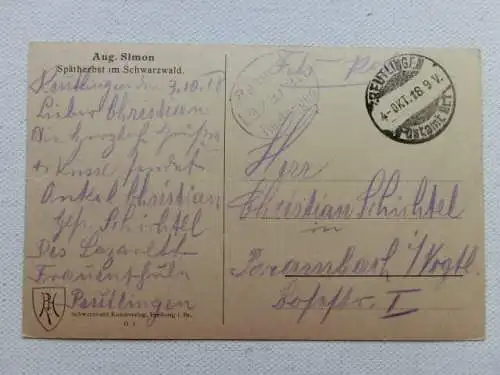 Aug. Simon
Spätherbst im Schwarzwald.
Reutlingen den 3.10.18
Lieber Christian
Die herzlichsten Grüße
+ Küsse sendet
Onkel Christian
Gefr. Schichtel
Res. Lazarett
Frauenschule
Reutlingen
Schwarzwald Kunstverlag, Freiburg i. Br.
Feldpost
REUTLINGEN
4-OKT. 18 9 V.
Postamt Nr.1
Herr
Christian Schichtel
in
i/Vogtl.
I